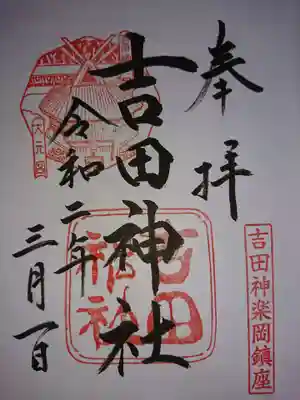 奉拝
吉田神楽岡鎮座
吉田神社
吉田
神社
大元宮
令和二年
三月一日